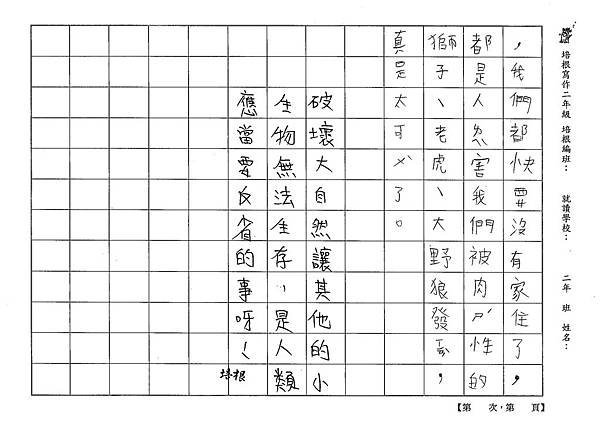 培根寫作二年級 培根編班： 就讀學校： 二年 班 姓名：
，我們都快要沒有家住了，
都是人害我們被肉ㄕˊ性的
獅子、老虎、大野狼發，
真是太可ㄨˋ了。
破壞大自然讓其他的小
生物無法生存，是人類
應當要反省的事呀！
培根
【第 次，第 頁】